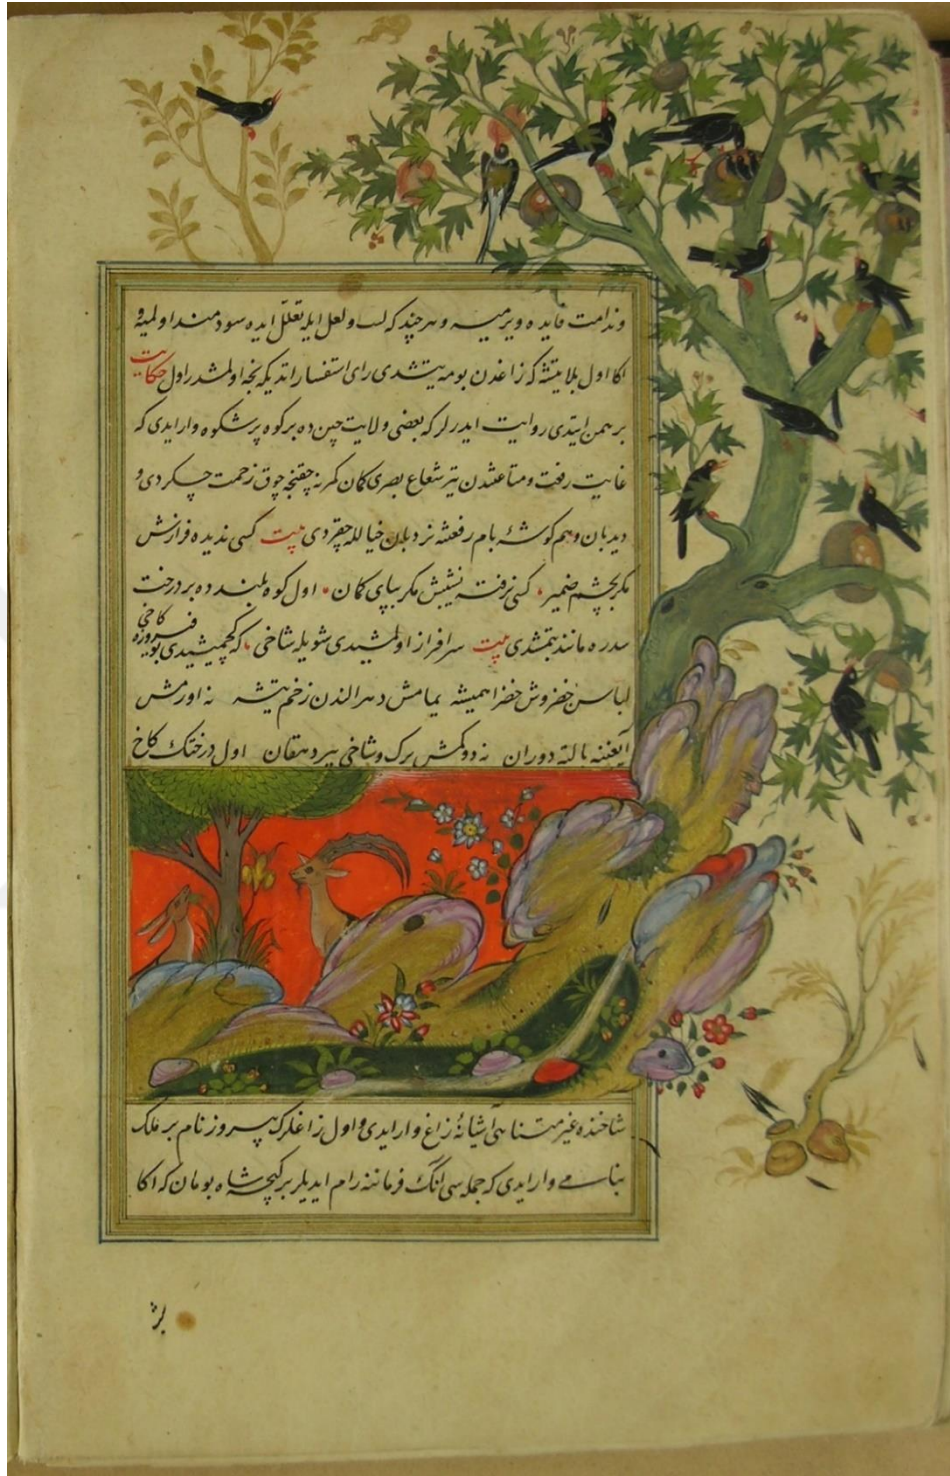 وندامت فایده ویرمیه و هر چند که لب ولعل ایله تعلل ایده سودمند اولمیه و
اکا اول بلا یتیشه که زاغدن بومه یتشدی رای استفسار اتدیکه نجه اولمشدر اول حکایت
برهمن ایتدی روایت ایدرلر که بعضی ولایت چین ده بر کوه پر شکوه وار ایدی که
غایت رفعت ومتاعتدن تیر شعاع بصری کمان کمرنه چقنجه چوق زحمت چکردی و
دیدبان وهم کوشهٔ بام رفعتنه نردبان خیالله چقردی بیت کسی ندیده فرازش
مکر بچشم ضمیر کسی نرفته نشیبش مکر بپای کمان اول کوه بلندده بر درخت
سدره مانند بتمشدی بیت سرافراز اولمشیدی شویله شاخی که کچمیشیدی بو فیروزه کاخی
لباس خضروش خضرا همیشه یمامش دهر الندن زخم تیشه نه اورمش
نه دوکمش برک وشاخی پیر دهقان اول درختک کاخ
شاخنده غیر متناهی آشیانهٔ زاغ وار ایدی و اول زاغلرک پیروز نام بر ملک
وار ایدی که جمله سی انک فرماننه رام ایدیلر بر کیجه شاه بومان که اکا